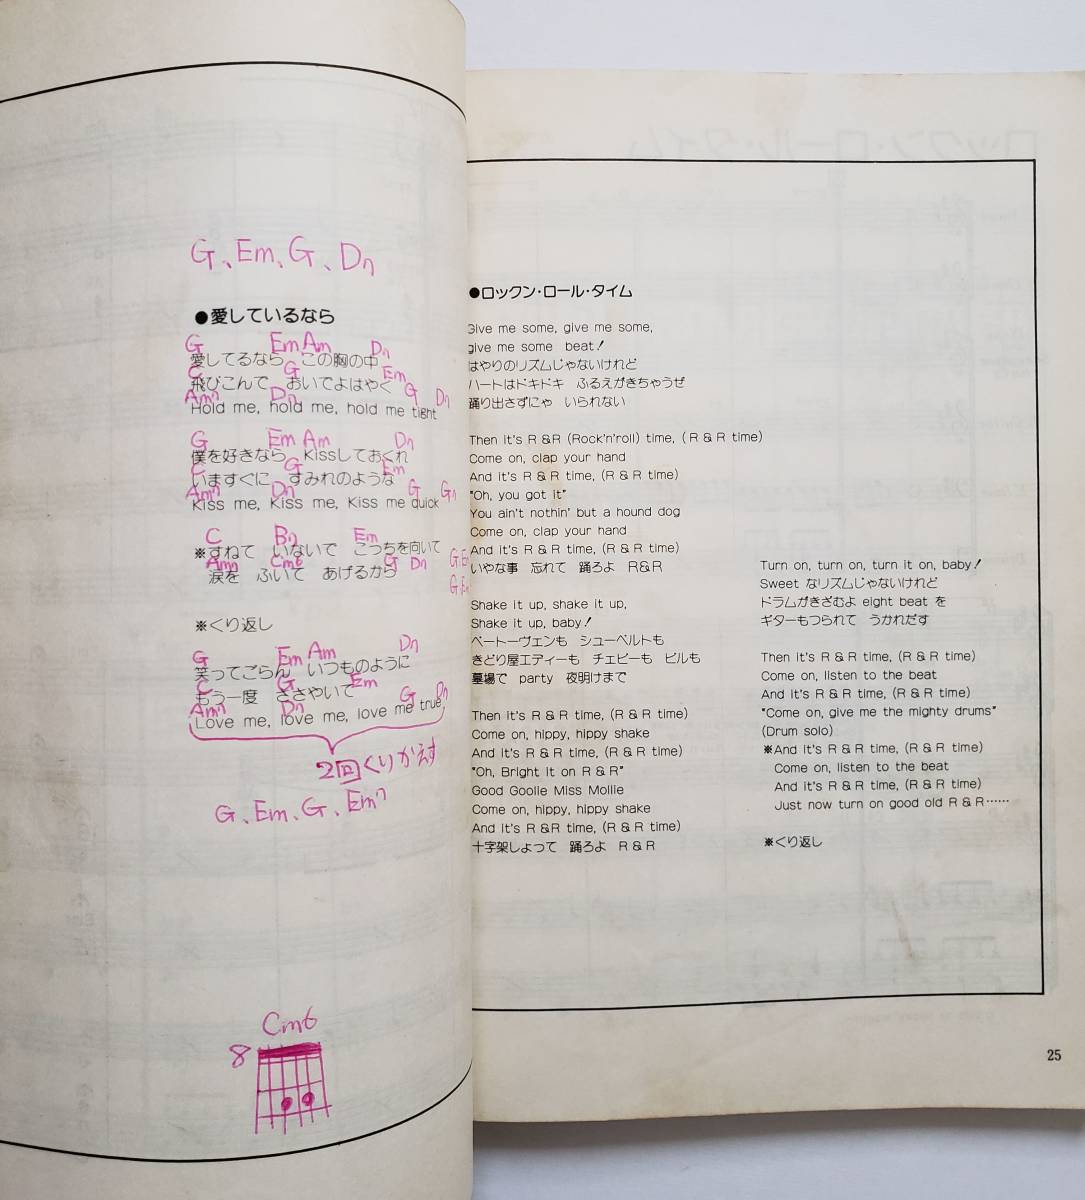 G、Em、G、D7
●愛しているなら
G Em Am D7
愛してるなら この胸の中
C G Em
飛びこんで おいでよはやく
Am7 D7 G D7
Hold me, hold me, hold me tight
G Em Am D7
僕を好きなら Kissしておくれ
C G Em
いますぐに すみれのような
Am7 D7 G G7
Kiss me, Kiss me, Kiss me quick
C B7 Em
※すねて いないで こっちを向いて
Am7 Cm6 G D7
涙を ふいて あげるから
※くり返し
G Em Am D7
笑ってごらん いつものように
C G Em
もう一度 ささやいて
Am7 D7 G D7
Love me, love me, love me true,
2回くりかえす
G、Em、G、Em7
Cm6
8
●ロックン・ロール・タイム
Give me some, give me some,
give me some beat!
はやりのリズムじゃないけれど
ハートはドキドキ ふるえがきちゃうぜ
踊り出さずにゃ いられない
Then it's R&R (Rock'n'roll) time, (R&R time)
Come on, clap your hand
And it's R&R time, (R&R time)
"Oh, you got it"
You ain't nothin' but a hound dog
Come on, clap your hand
And it's R&R time, (R&R time)
いやな事 忘れて 踊ろよ R&R
Shake it up, shake it up,
Shake it up, baby!
ベートーヴェンも シューベルトも
きどり屋エディーも チェビーも ビルも
墓場で party 夜明けまで
Then it's R&R time, (R&R time)
Come on, hippy, hippy shake
And it's R&R time, (R&R time)
"Oh, Bright it on R&R"
Good Goolie Miss Mollie
Come on, hippy, hippy shake
And it's R&R time, (R&R time)
十字架しょって 踊ろよ R&R
Turn on, turn on, turn it on, baby!
Sweet なリズムじゃないけれど
ドラムがきざむよ eight beat を
ギターもつられて うかれだす
Then it's R&R time, (R&R time)
Come on, listen to the beat
And it's R&R time, (R&R time)
"Come on, give me the mighty drums"
(Drum solo)
※And it's R&R time, (R&R time)
Come on, listen to the beat
And it's R&R time, (R&R time)
Just now turn on good old R&R……
※くり返し
25